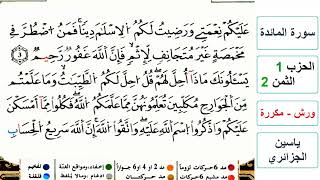 عَلَيْكُمْ نِعْمَتِي وَرَضِيتُ لَكُمُ الْإِسْلَامَ دِينًا فَمَنُ اضْطُرَّ فِي
مَخْمَصَةٍ غَيْرَ مُتَجَانِفٍ لِإِثْمٍ فَإِنَّ اللَّهَ غَفُورٌ رَحِيمٌ
يَسْـَٔلُونَكَ مَاذَا أُحِلَّ لَهُمْ قُلْ أُحِلَّ لَكُمُ الطَّيِّبَاتُ وَمَا عَلَّمْتُم
مِّنَ الْجَوَارِحِ مُكَلِّبِينَ تُعَلِّمُونَهُنَّ مِمَّا عَلَّمَكُمُ اللَّهُ فَكُلُوا مِمَّا أَمْسَكْنَ
عَلَيْكُمْ وَاذْكُرُوا اسْمَ اللَّهِ عَلَيْهِ وَاتَّقُوا اللَّهَ إِنَّ اللَّهَ سَرِيعُ الْحِسَابِ
سورة المائدة
الحزب 1
الثمن 2
ورش - مكررة
ياسين
الجزائري